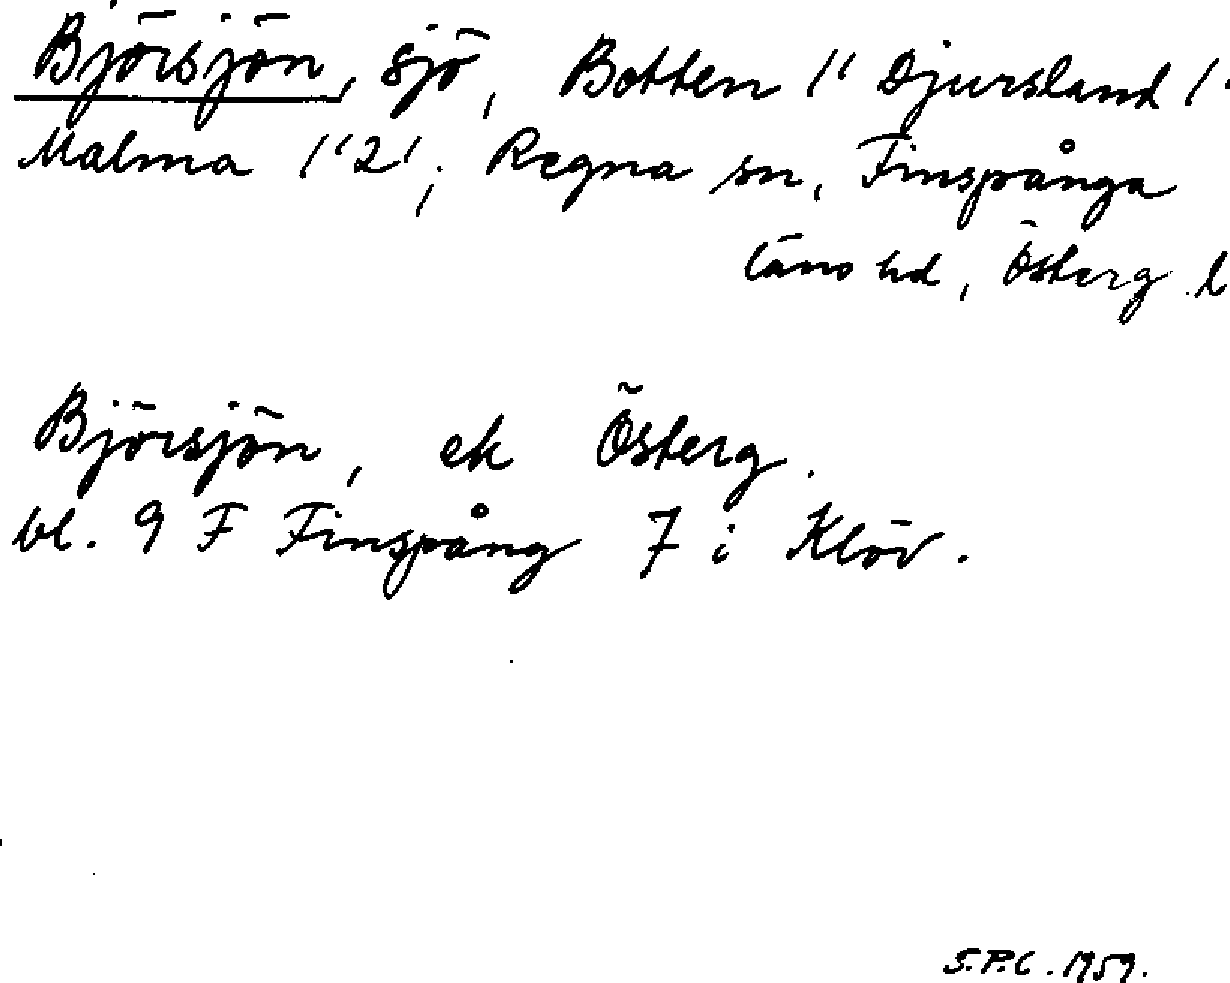 Björsjön, sjö, Botten 1' Djursland 1'
Malma 1'2', Regna sn, Finspånga
läns hd, Österg l
Björsjön, ek Österg.
bl. 9 F Finspång 7 i Klöv.
S.P.C. 1959.